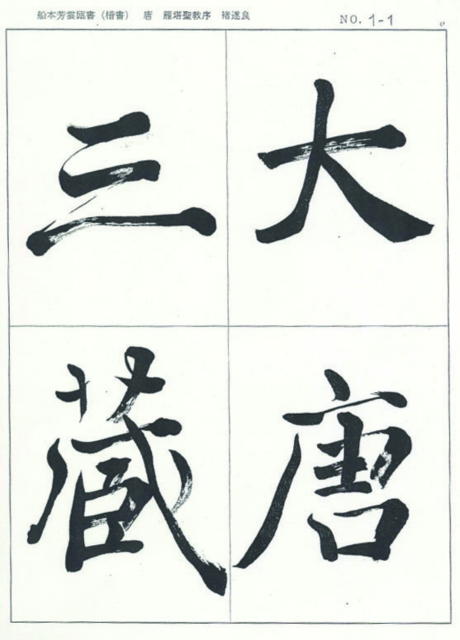 船本芳雲臨書（楷書） 唐 雁塔聖教序 褚遂良
NO. 1-1
大唐
三藏